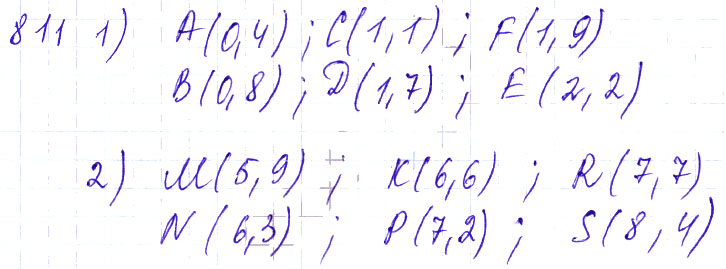 811 1) A(0,4) ; C(1,1) ; F(1,9)
B(0,8) ; D(1,7) ; E(2,2)
2) M(5,9) ; K(6,6) ; R(7,7)
N(6,3) ; P(7,2) ; S(8,4)